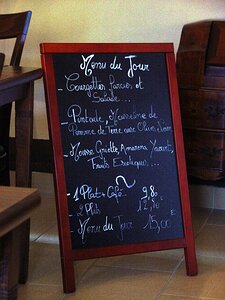 Menu du Jour
- Courgettes Farcies et
Salade...
- Pintade, Mousseline de
Pomme de Terre avec Olives Noires
- Mousse Griotte, Amarena, Yaourt,
Fruits Exotiques...
- 1 Plat + Café 9,80
2 Plats 12,90 €
Menu du Jour 15,00